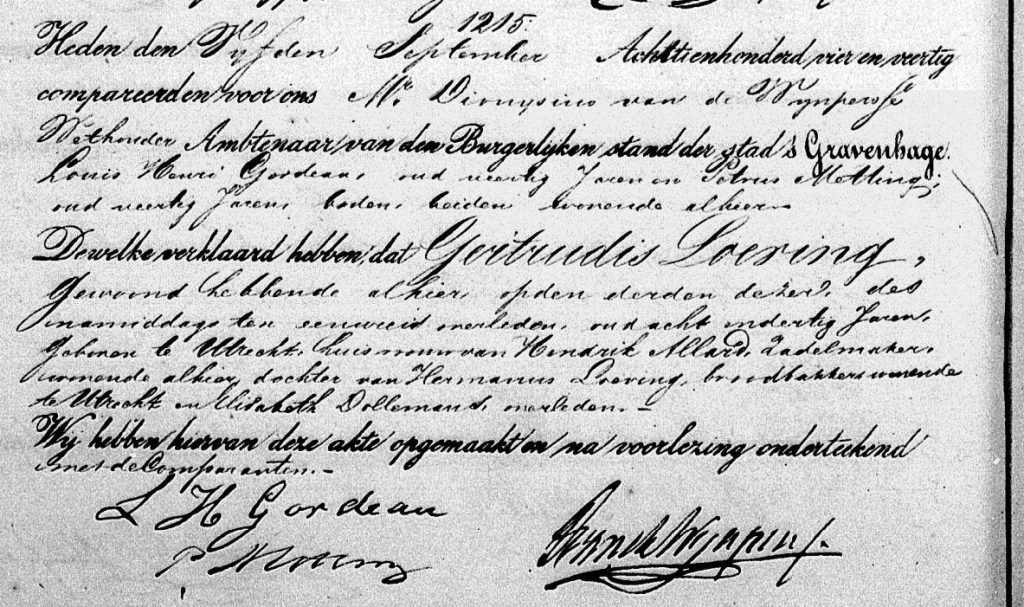 1215.
Heden den Vyfden September Achttienhonderd vier en veertig
compareerden voor ons Mr. Dionysius van de Wynpersse
Wethouder Ambtenaar van den Burgerlyken stand der stad 's Gravenhage.
Louis Henri Gordeau, oud veertig Jaren en Petrus Metting,
oud veertig Jaren, boden, beiden wonende alhier
Dewelke verklaard hebben, dat Geertrudis Loeving,
gewoond hebbende alhier, op den derden dezer, des
namiddags ten een ure is overleden, oud acht en dertig Jaren,
geboren te Utrecht, huisvrouw van Hendrik Allard, Zadelmaker,
wonende alhier, dochter van Hermanus Loeving, broodbakker, wonende
te Utrecht en Elisabeth Dollemans, overleden. —
Wij hebben hiervan deze akte opgemaakt en na voorlezing onderteekend
met de Comparanten. —
L H Gordeau
P Metting